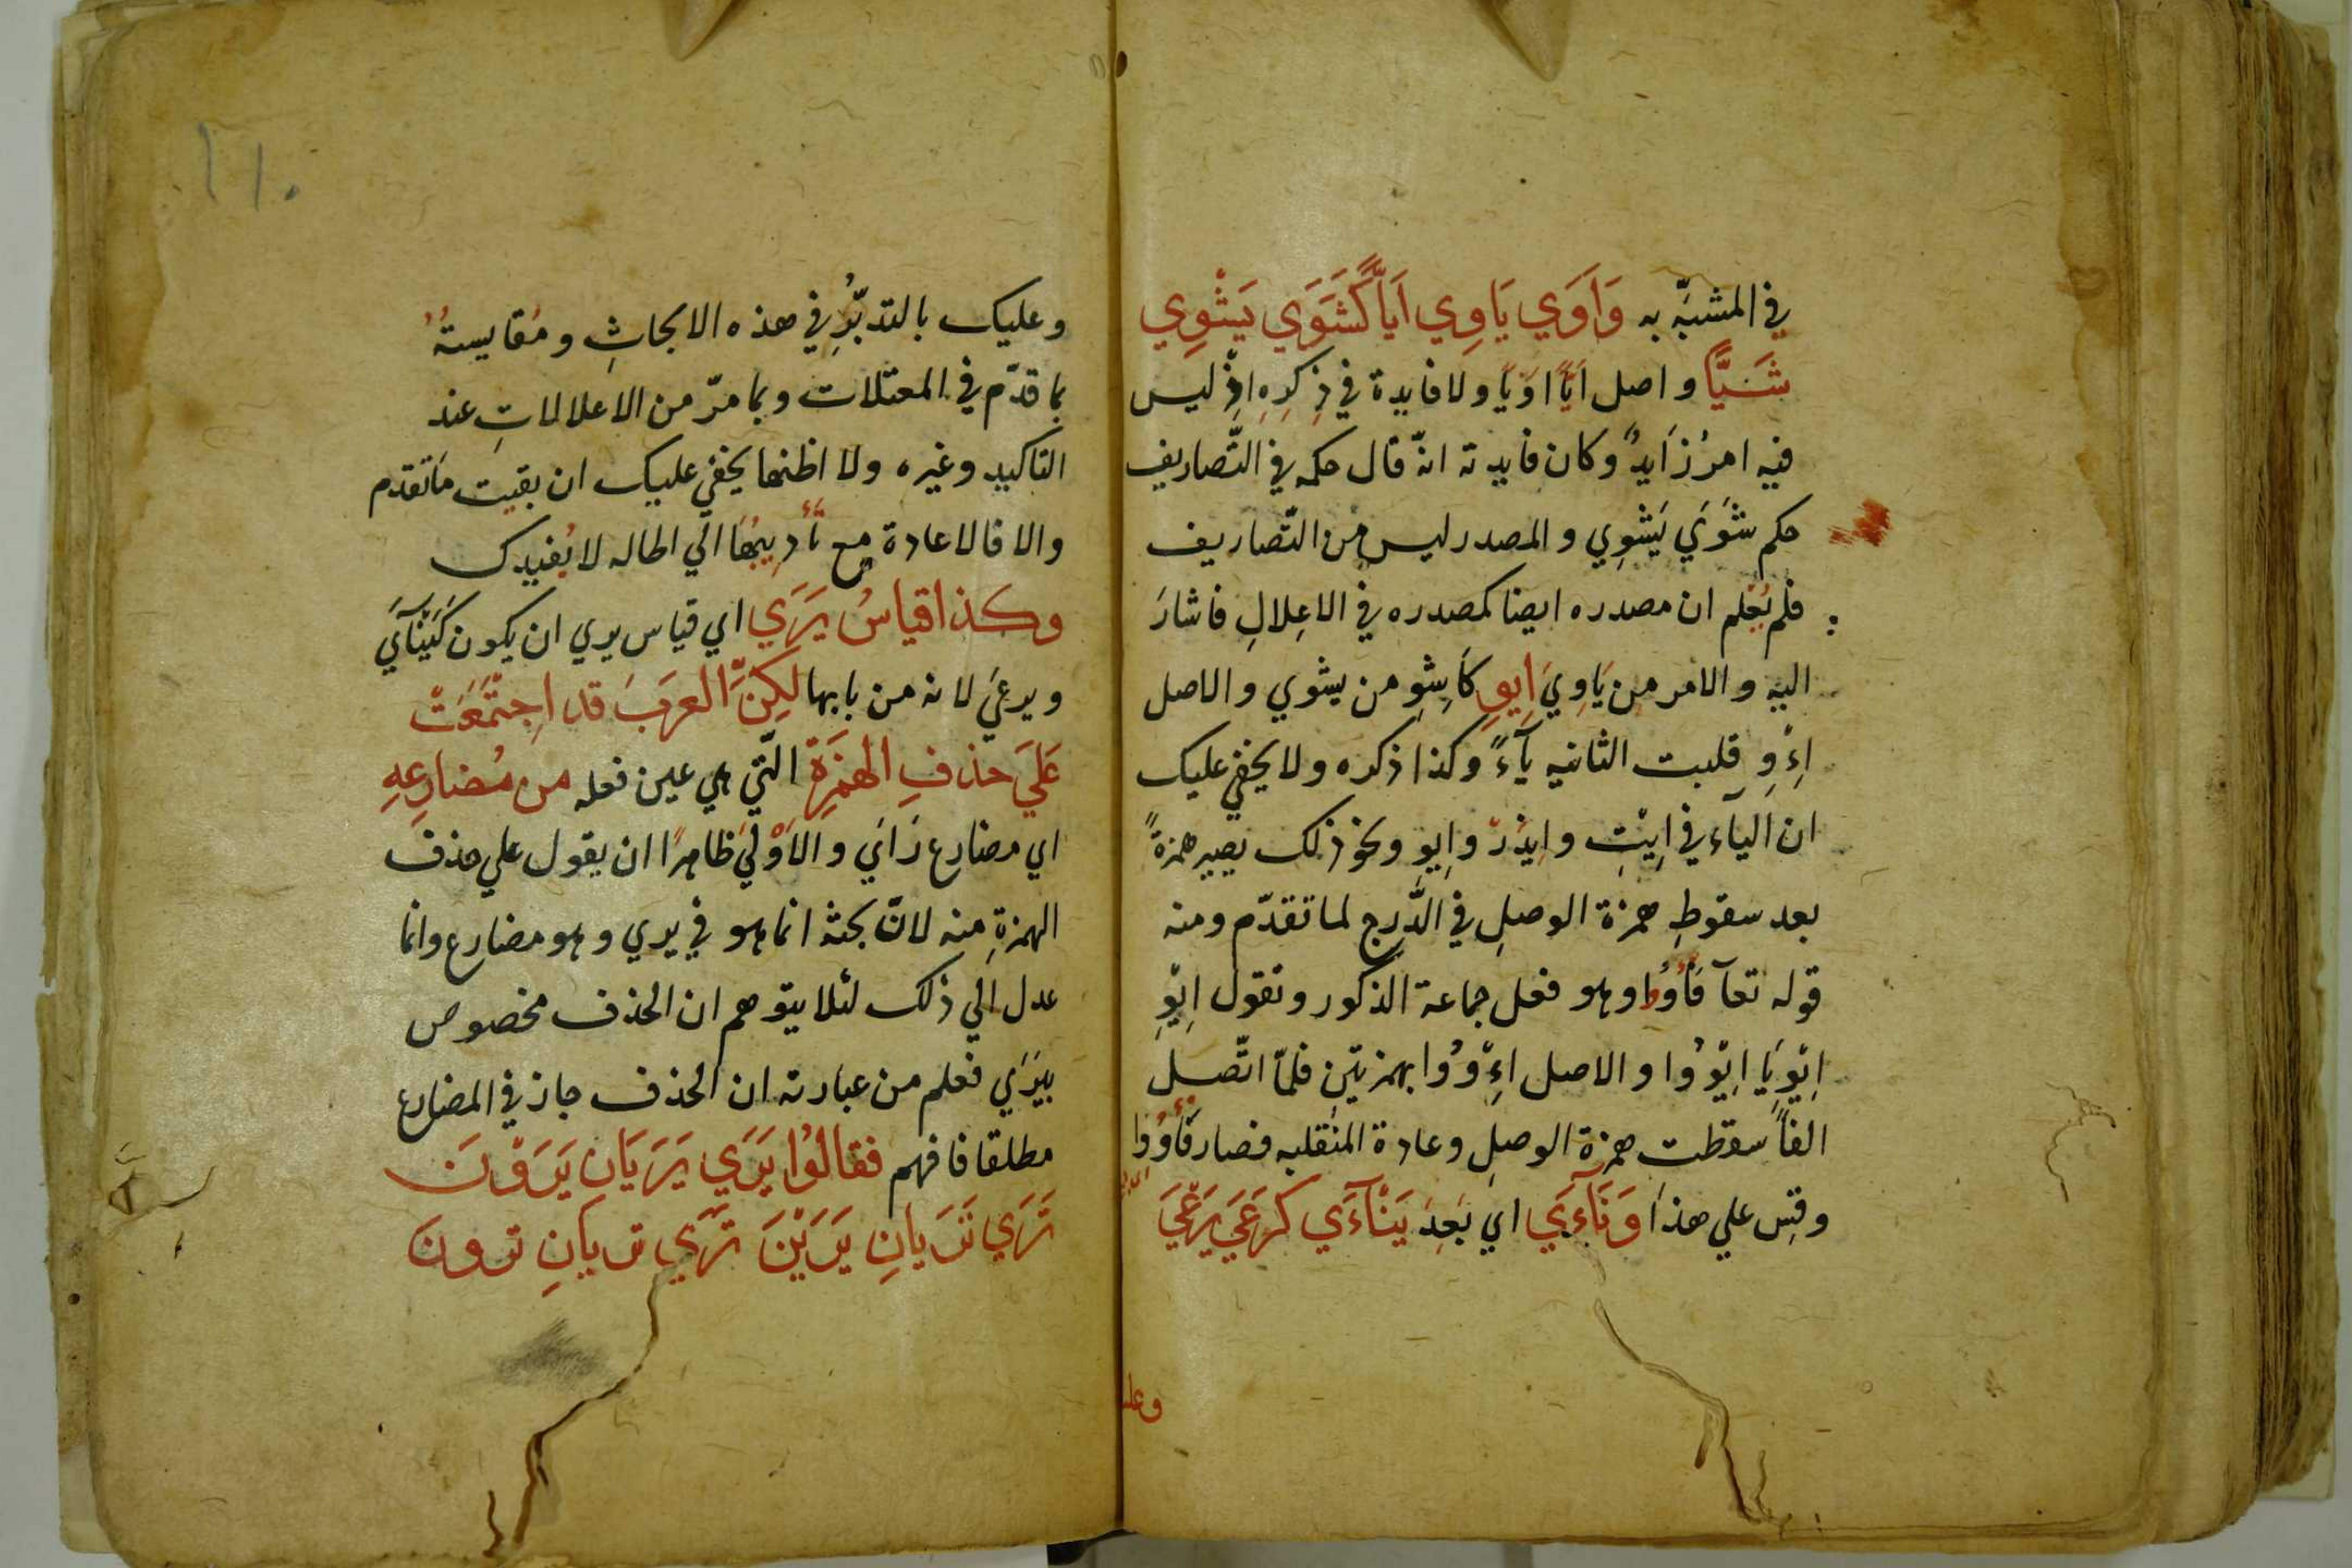 في المشبّه به وَاَوَي يَاوِي اَيّاً كَشَوَي يَشْوِي
شَيًّا واصل اَيّاً اوَيًا ولا فايدة في ذِكرِهِ اذْ ليس
فيه امرُ زَايدٌ وكان فايدته انّه قال حكمه في التّصاريف
حكم شَوَي يَشْوِي والمصدر ليس من التّصاريف
فلم يُعْلم ان مصدره ايضا كمصدره في الاعِلالِ فاشارَ
اليه والامر من يَاوِيَ اِيوِ كَاشِوِ من يشوي والاصل
اِءْوِ قلبت الثانيه يآءً وكذا ذكره ولا يخفي عليك
ان اليآء في اِيتِ وايذَرْ وايوِ ونحو ذلك يصير همزةً
بعد سقوطِ همزة الوصلِ في الدَّرجِ لما تقدّم ومنه
قوله تعآ فَأْوُا وهو فعل جماعة الذكور وتقول اِيْوِ
اِيْوِيَا اِيْوُوا والاصل اءِْوُوا بهمزتين فلمّا اتّصل
الفاً سقطت همزة الوصلِ وعادة المنقلبه فصار فَأْوُوا
وقِس علي هذا وَنَآءَي اي بَعِدَ يَنْآءَي كرَعَيَ يَرْعَيَ
وعليك
وعليك بالتدبّرِ في هذه الابحاثِ ومُقايستهُ
بما قدّم في المعتلات وبما مرّ من الاعلالاتِ عند
التاكيد وغيره ولا اظنها يخفي عليك ان بقيت ماتقدم
والا فالاعادة مع تأدِيتِهَا الي اطاله لا يُفيدك
وكذا قياسُ يَرَي اي قياس يري ان يكون كَيَنْآَيَ
ويرعَي لانه من بابها لكِنَّ العرَبَ قد اجِتْمَعَتْ
عَلَيَ حذفِ الهمْزَةِ الّتي هي عين فعله من مُضارِعِهِ
اي مضارع رَاَي والاَوْليَ ظاهرًا ان يقول علي حذف
الهمزةِ منه لانّ بحثه انما هو في يري وهو مضارع وانما
عدل الي ذلك لئلا يتوهم ان الحذف مخصوص
بيَرَي فعلم من عبارته ان الحذف جاز في المضارع
مطلقا فافهم فقالُوا يَرَي يَرَيَانِ يَرَوْنَ
تَرَي تَرَيانِ يَرَيْنَ تَرَي تريانِ ترونَ